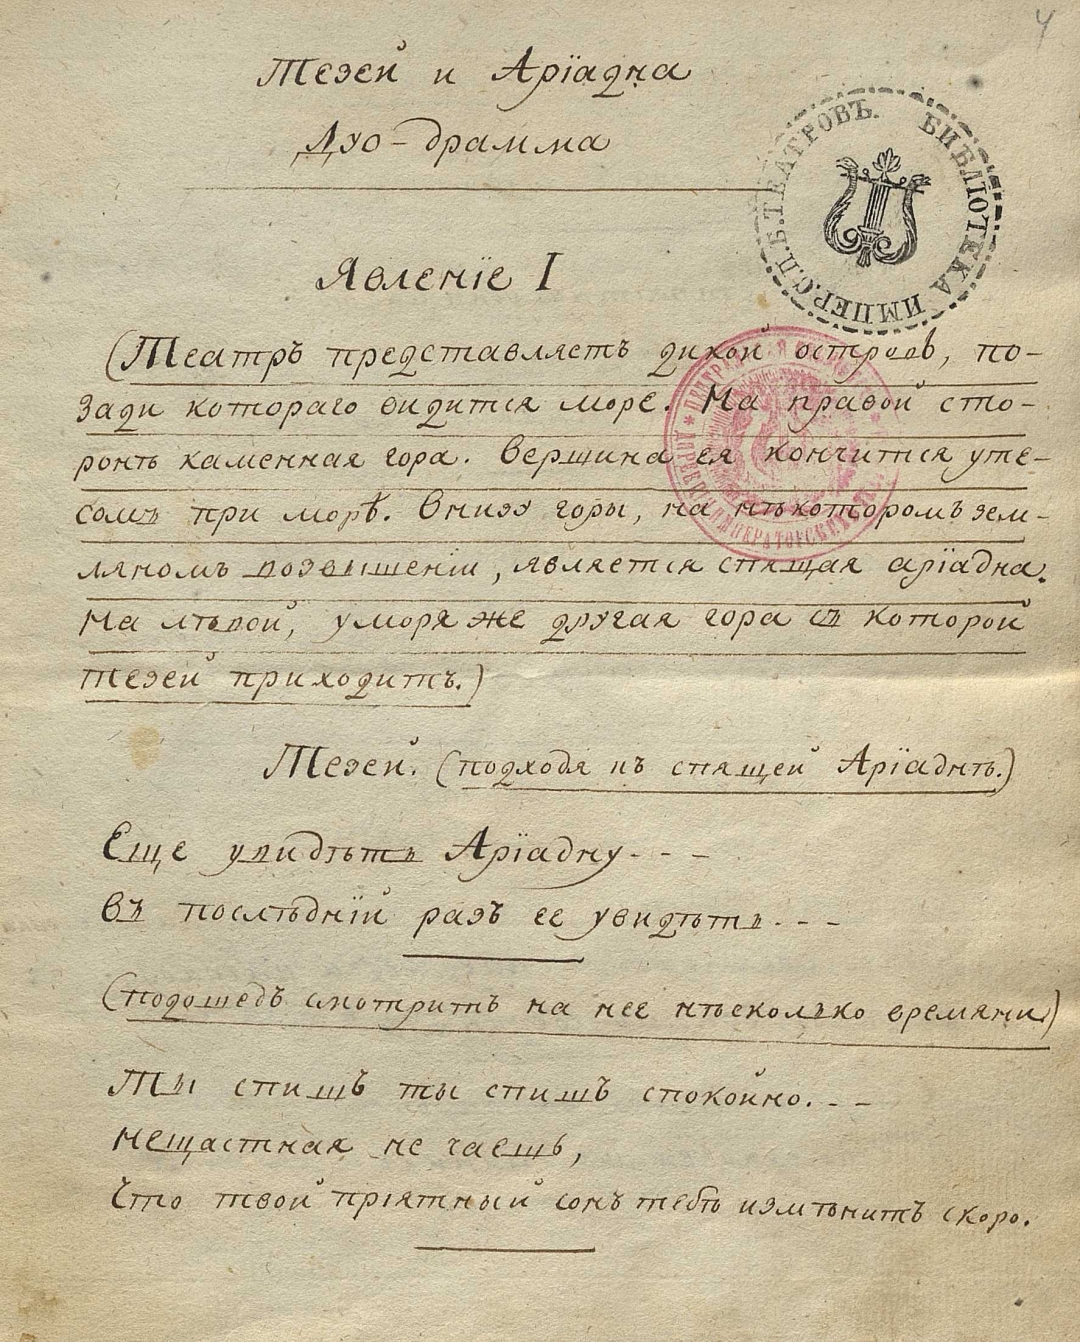 4
Тезей и Аріадна
Дуо-драмма
БИБЛІОТЕКА ИМПЕР. С.П.Б. ТЕАТРОВЪ.
Явленіе I
(Театръ представляетъ дикой островъ, по-
зади котораго видится море. На правой сто-
ронѣ каменная гора. Вершина ея кончится уте-
сомъ при морѣ. Внизу горы, на нѣкоторомъ зем-
ляномъ возвышеніи, является спящая аріадна.
На лѣвой, у моря же другая гора съ которой
тезей приходитъ.)
Тезей. (подходя къ спящей Аріаднѣ.)
Еще увидѣть Аріадну - - -
въ послѣдній разъ ее увидѣть - - -
(подошедъ смотритъ на нее нѣсколько времяни)
Ты спишь ты спишь спокойно. - -
Нещастная не чаешь,
Что твой пріятный сонъ тебѣ измѣнитъ скоро.